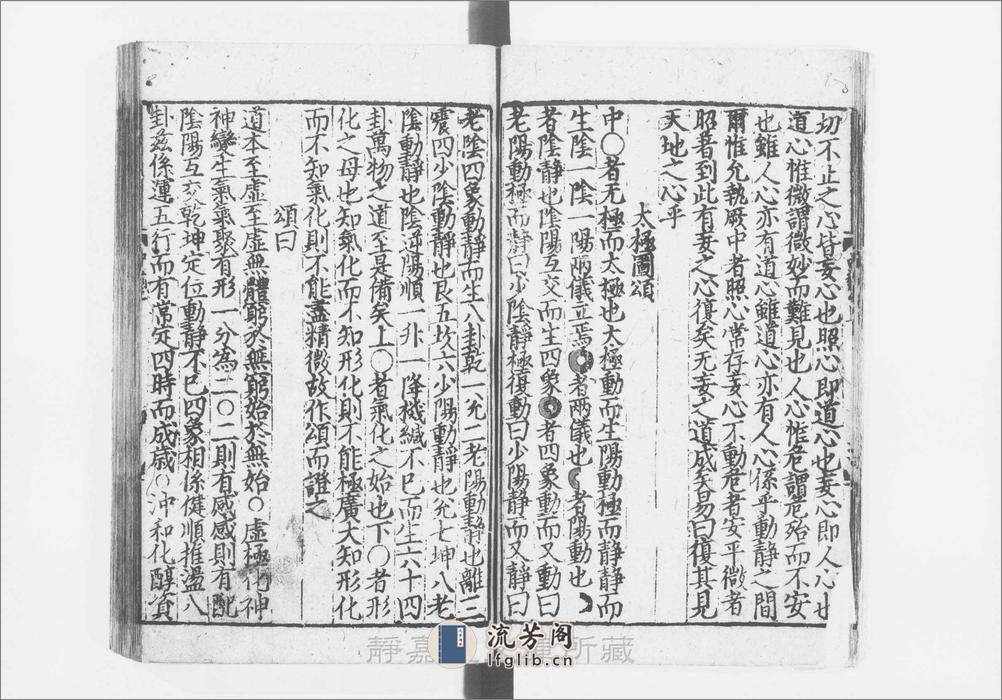 切不止之心皆妄心也照心即道心也妄心即人心也
道心惟微謂微妙而難見也人心惟危謂危殆而不安
也雖人心亦有道心雖道心亦有人心係乎動靜之間
爾惟允執厥中者照心常存妄心不動危者安平微者
昭著到此有妄之心復矣无妄之道成矣易曰復其見
天地之心乎
太極圖頌
中〇者无極而太極也太極動而生陽動極而靜靜而
生陰一陰一陽兩儀立焉者兩儀也者陽動也
者陰靜也陰陽互交而生四象者四象動而又動曰
老陽動極而靜曰少陰靜極復動曰少陽靜而又靜曰
老陰四象動靜而生八卦乾一兊二老陽動靜也離三
震四少陰動靜也巽五坎六少陽動靜也艮七坤八老
陰動靜也陰逆陽順一升一降機緘不已而生六十四
卦萬物之道至是備矣上〇者氣化之始也下〇者形
化之母也知氣化而不知形化則不能極廣大知形化
而不知氣化則不能盡精微故作頌而證之
頌曰
道本至虛至虛無體窮於無窮始於無始〇虛極化神
神變生氣氣聚有形一分為二〇二則有感感則有配
陰陽互交乾坤定位動靜不已四象相係健順推盪八
卦茲係運五行而有常定四時而成歲〇沖和化醇資
靜嘉 所藏
流芳阁
lfglib.cn